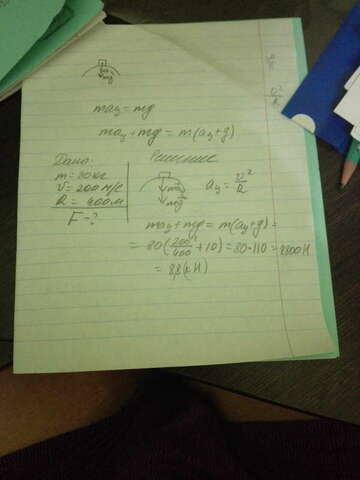 mg
v²/R
v²/R
maц = mg
maц + mg = m(aц + g)
Дано:
m = 80 кг
v = 200 м/с
R = 400 м
F - ?
Решение
ma
mg
aц = v²/R
maц + mg = m(aц + g) =
= 80(200²/400 + 10) = 80 · 110 = 8800 Н
= 8,8 (кН)